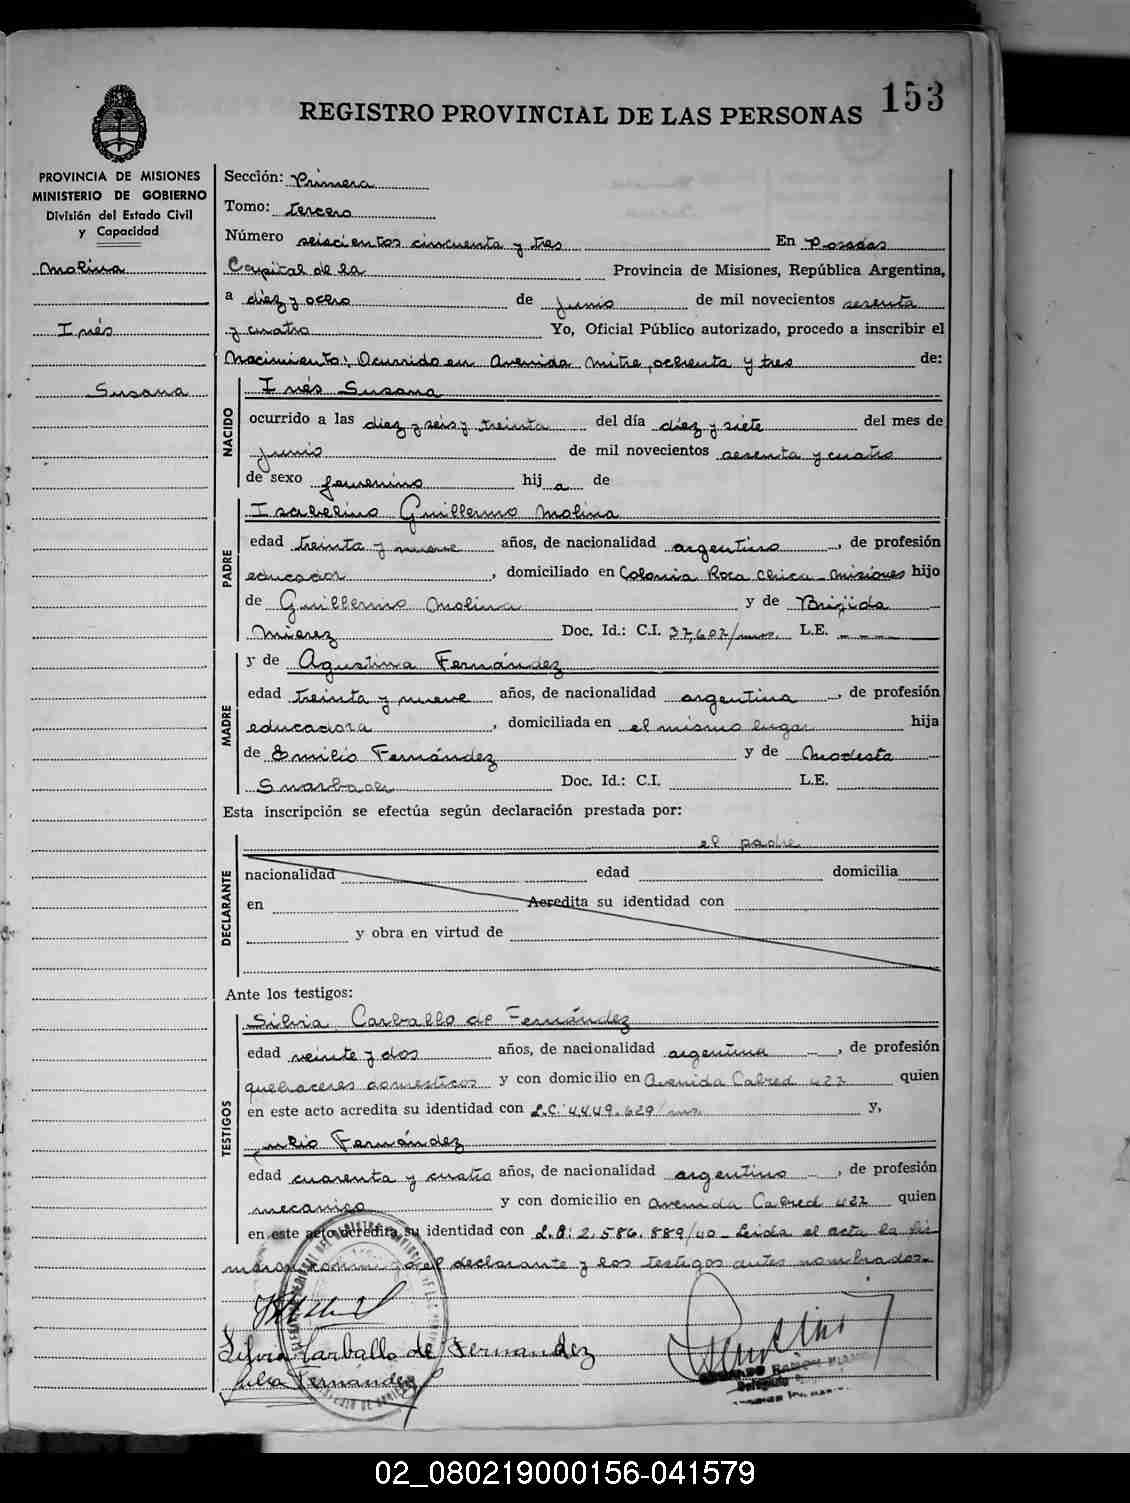 REGISTRO PROVINCIAL DE LAS PERSONAS 153
PROVINCIA DE MISIONES
MINISTERIO DE GOBIERNO
División del Estado Civil
y Capacidad
Molina
Inés
Susana
Sección: Primera
Tomo: tercero
Número seiscientos cincuenta y tres En Posadas
Capital de la Provincia de Misiones, República Argentina,
a diez y ocho de junio de mil novecientos sesenta
y cuatro Yo, Oficial Público autorizado, procedo a inscribir el
Nacimiento: Ocurrido en Avenida Mitre, ochenta y tres de:
NACIDO
Inés Susana
ocurrido a las diez y seis y treinta del día diez y siete del mes de
junio de mil novecientos sesenta y cuatro
de sexo femenino hij a de
PADRE
Isabelino Guillermo Molina
edad treinta y nueve años, de nacionalidad argentino, de profesión
educador, domiciliado en Colonia Roca Chica - Misiones hijo
de Guillermo Molina y de Brijida
Mierez Doc. Id.: C.I. 37,607/mnes. L.E. ----
MADRE
y de Agustina Fernández
edad treinta y nueve años, de nacionalidad argentina, de profesión
educadora, domiciliada en el mismo lugar hija
de Emilio Fernández y de Modesta
Doc. Id.: C.I. L.E.
Esta inscripción se efectúa según declaración prestada por:
DECLARANTE
el padre
nacionalidad edad domicilia
en Acredita su identidad con
y obra en virtud de
Ante los testigos:
TESTIGOS
Silvia Carballo de Fernández
edad veinte y dos años, de nacionalidad argentina, de profesión
quehaceres domésticos y con domicilio en Avenida Cabred 427 quien
en este acto acredita su identidad con L.C. 4.449.629/ms. y,
Julio Fernández
edad cuarenta y cuatro años, de nacionalidad argentino, de profesión
mecánico y con domicilio en avenida Cabred 427 quien
en este acto acredita su identidad con L.E: 2.586.889/40 - Leída el acta la fir-
maron conmigo el declarante y los testigos antes nombrados.-
Silvia Carballo de Fernandez
Julio Fernández
02_080219000156-041579